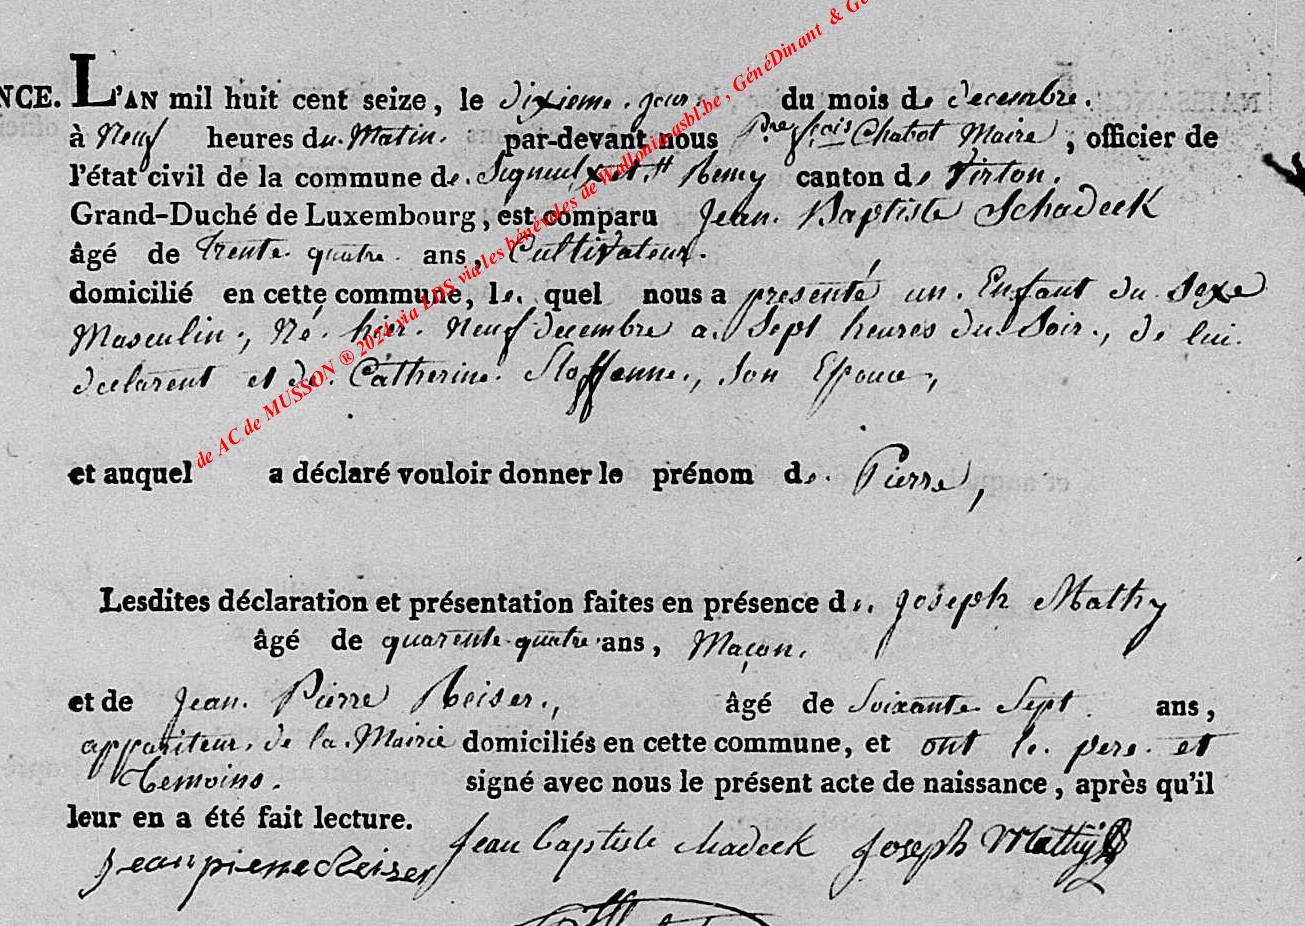 NCE. L'AN mil huit cent seize, le dixieme jour. du mois de decembre.
à Neuf heures du Matin. par-devant nous Chabot Maire, officier de
l'état civil de la commune de Signeulx et St Remy canton de Virton.
Grand-Duché de Luxembourg, est comparu Jean Baptiste Schadeck
âgé de trente quatre ans, Cultivateur.
domicilié en cette commune, le quel nous a presenté un Enfant du Sexe
Masculin, Né hier Neuf decembre a Sept heures du Soir, de lui
declarent et de Catherine, Son Epouce,
et auquel a déclaré vouloir donner le prénom de Pierre,
Lesdites déclaration et présentation faites en présence de Joseph Mathy
âgé de quarente quatre ans, Maçon.
et de Jean Pierre Reiser, âgé de Soixante Sept ans,
appariteur de la Mairie domiciliés en cette commune, et ont le pere et
temoins. signé avec nous le présent acte de naissance, après qu'il
leur en a été fait lecture.
Jean pierre Reiser Jean baptiste chadeck Joseph Mathy
de AC de MUSSON ® 2024 via LDS via les bénévoles de Walloniaasbl.be, GénéDinant & G